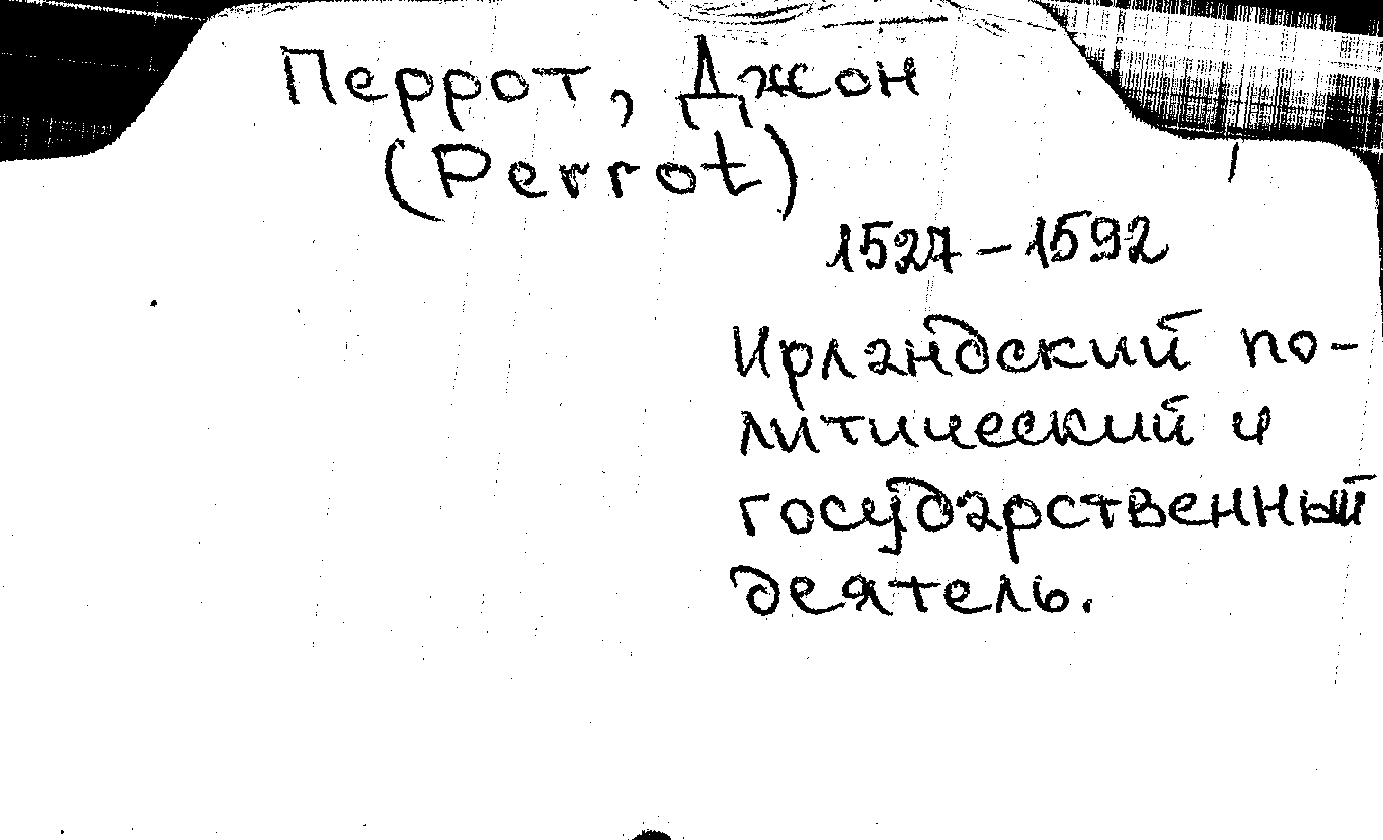 Перрот, Джон
(Perrot)
1527 – 1592
Ирландский по-
литический и
государственный
деятель.